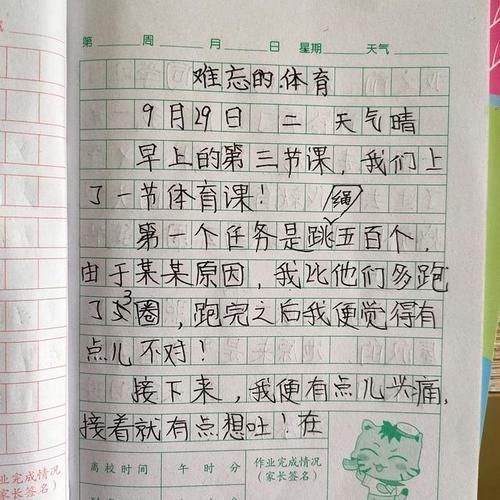 第 周 月 日 星期 天气
难忘的体育
9月29日 二 天气晴
早上的第三节课，我们上
了一节体育课！
绳
第一个任务是跳五百个，
由于某某原因，我比他们多跑
了3圈，跑完之后我便觉得有
点儿不对！
接下来，我便有点儿头痛，
接着就有点想吐！在
离校时间 午 时 分 作业完成情况
（家长签名）
作业完成情况
（家长签名）